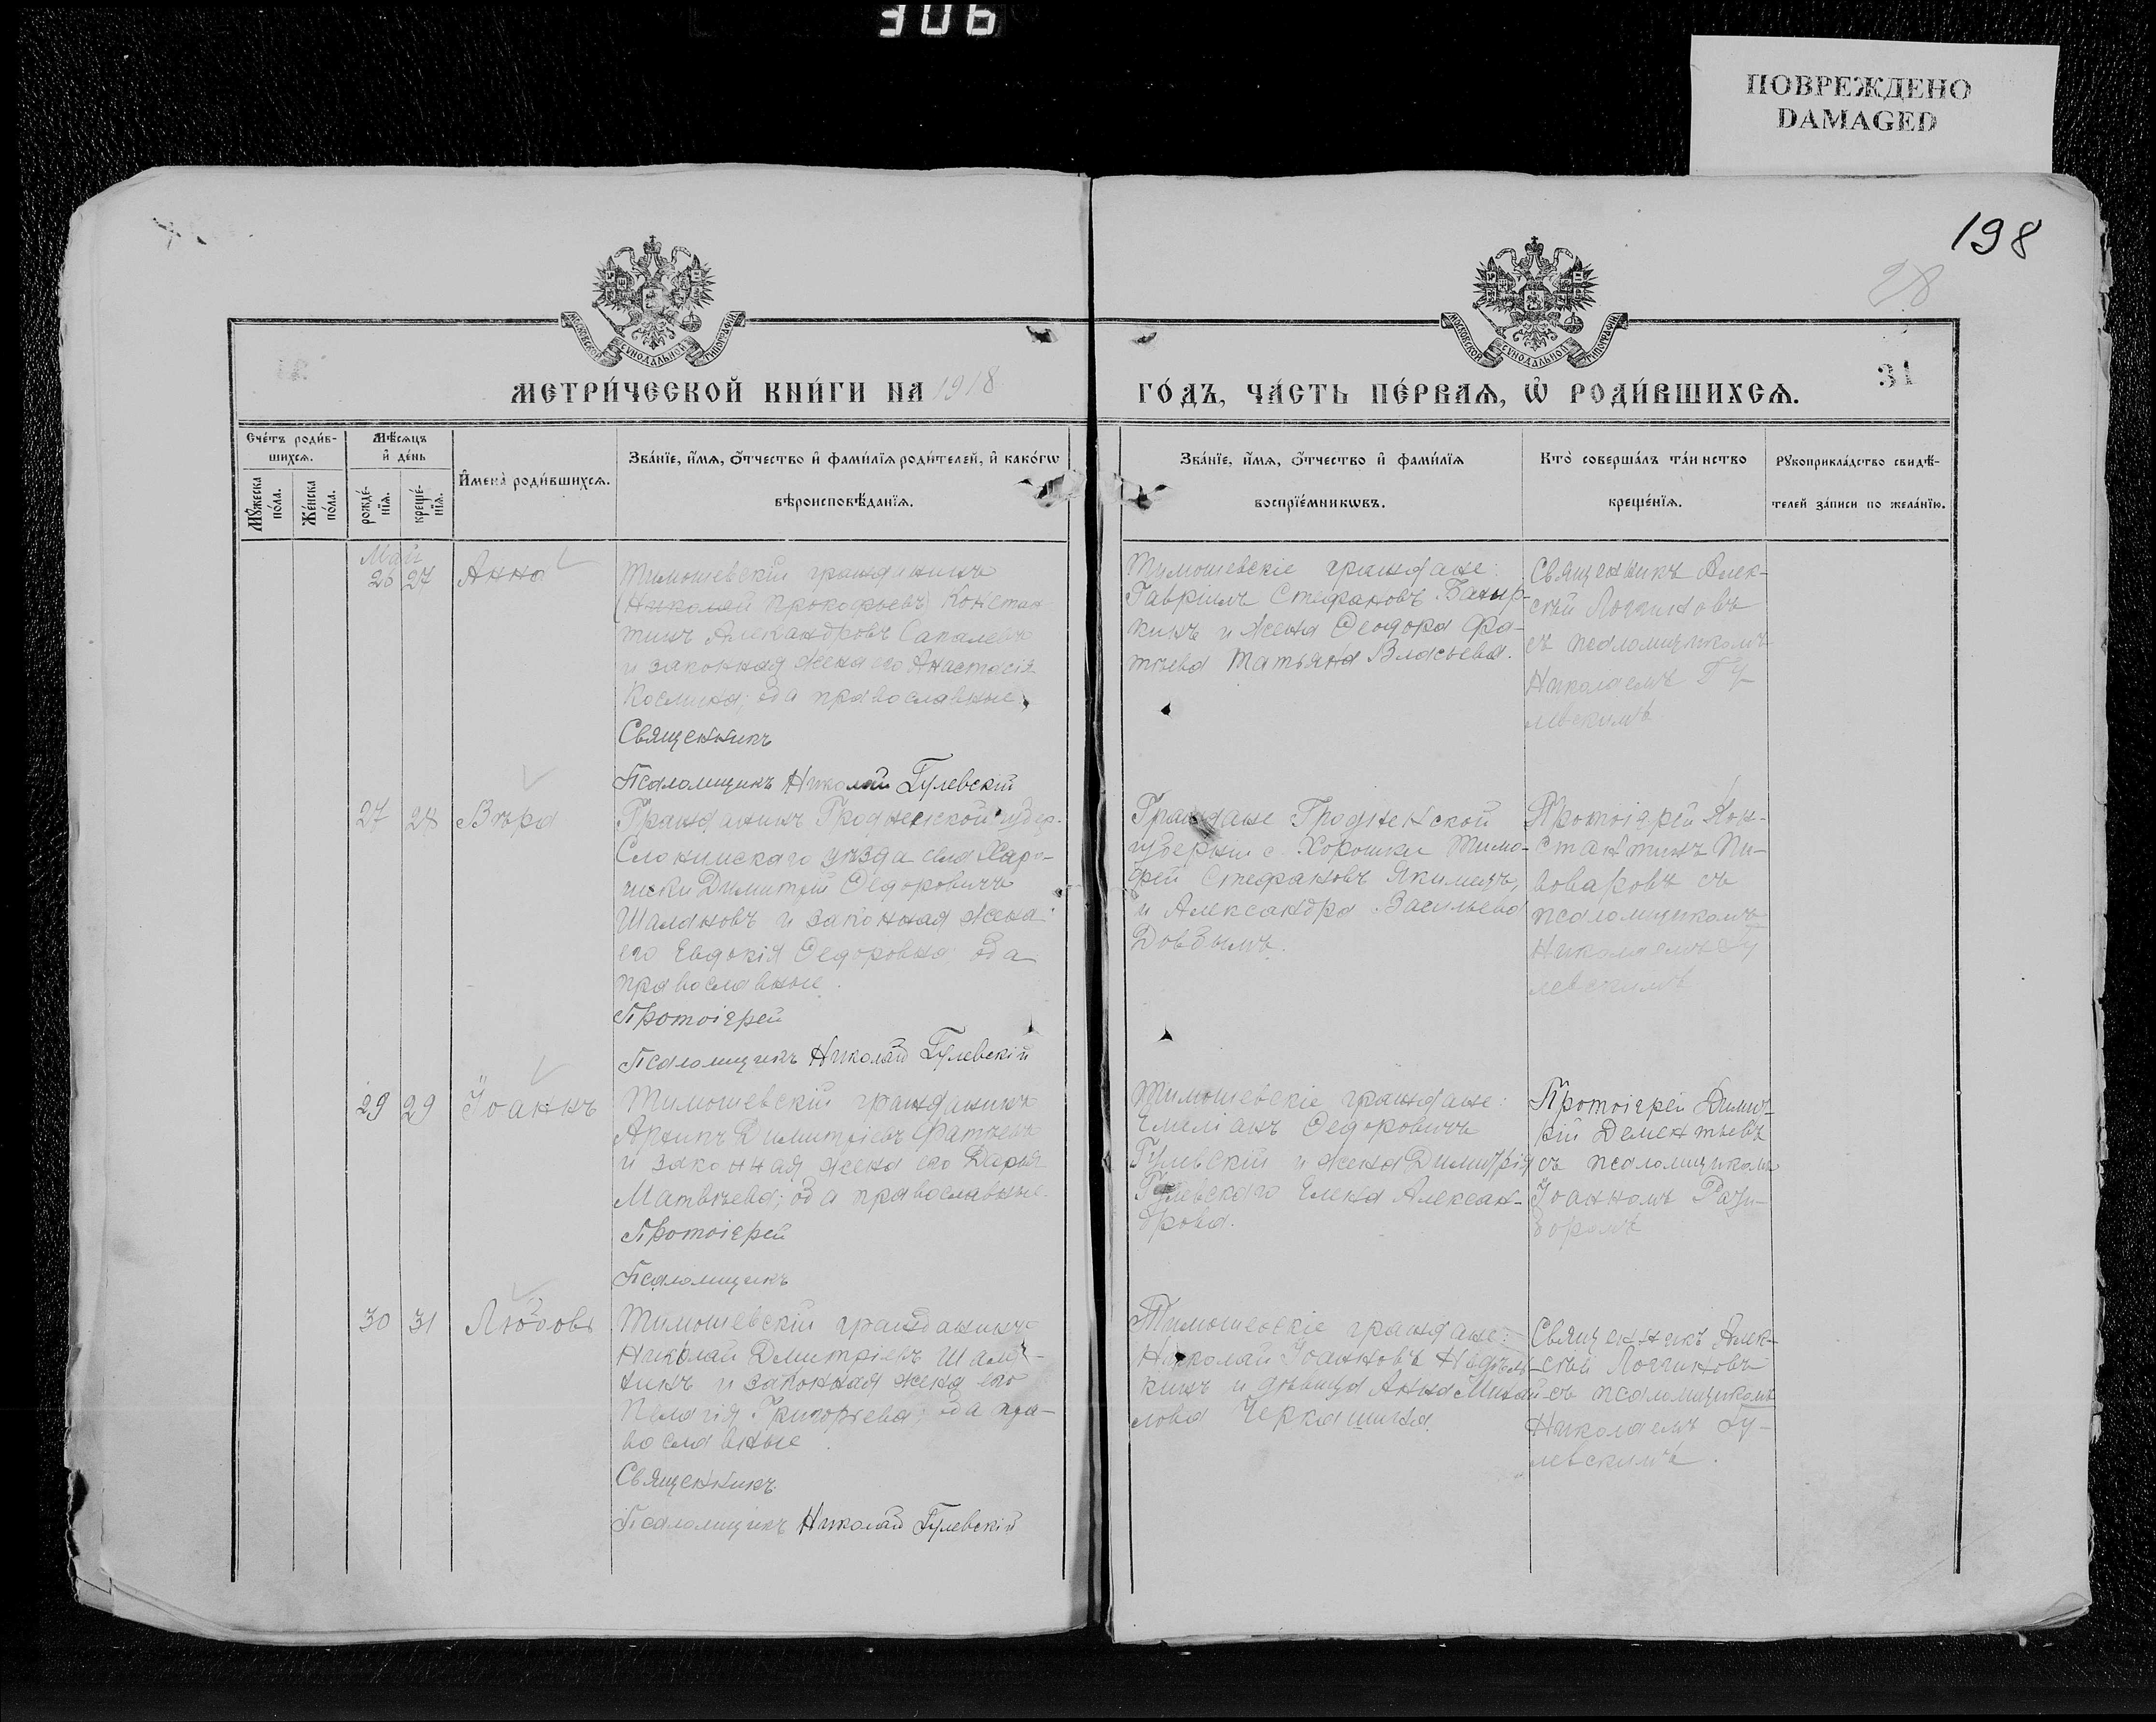 306
ПОВРЕЖДЕНО
DAMAGED
198
28
31
МОСКОВСКОЙ СѴНОДАЛЬНОЙ ТИПОГРАФІИ
МОСКОВСКОЙ СѴНОДАЛЬНОЙ ТИПОГРАФІИ
МЕТРИ́ЧЕСКОЙ КНИ́ГИ НА 1918
ГО́ДЪ, ЧА́СТЬ ПЕ́РВАѦ, Ѽ РОДИ́ВШИХСѦ.
Сче́тъ роди́в-
шихсѧ.
Мѣ́сѧцъ
и҆ де́нь
Мꙋ́жеска
по́ла.
Же́нска
по́ла.
рожде́-
нїѧ.
креще́-
нїѧ.
И҆мена̀ роди́вшихсѧ.
Зва́нїе, и҆́мѧ, ѻ҆́тчество и҆ фами́лїѧ роди́телей, и҆ како́гѡ
вѣроисповѣ́данїѧ.
Зва́нїе, и҆́мѧ, ѻ҆́тчество и҆ фами́лїѧ
воспрїе́мникѡвъ.
Кто̀ соверша́лъ та́инство
креще́нїѧ.
Рꙋкоприкла́дство свидѣ́-
телей за́писи по жела́нїю.
Май
26 27 Анна
Тимошевскій гражданинъ
(Николай Прокофьевъ) Констан-
тинъ Александровъ Сапалевъ
и законная жена его Анастасія
оба православные,
Священникъ
Псаломщикъ Николай Гулевскій
Тимошевскіе граждане:
Гавріилъ Стефановъ
и жена Ѳеодора Фа-
тѣева Татьяна Власьева.
Священникъ Алек-
сѣй Логгиновъ
съ псаломщикомъ
Николаемъ Гу-
левскимъ
27 28 Вѣра
Гражданинъ Гродненской губер.
Слонимскаго уѣзда села
Димитрій Ѳедоровичъ
Шалановъ и законная жена
его Евдокія Ѳедоровна оба
православные.
Протоіерей
Псаломщикъ Николай Гулевскій
Граждане Гродненской
губерніи с. Хорошки Тимо-
фей Стефановъ Якимецъ,
и Александра Васильева
Довбышъ.
Протоіерей Кон-
стантинъ Пи-
воваровъ съ
псаломщикомъ
Николаемъ Гу
левскимъ
29 29 Іоаннъ
Тимошевскій гражданинъ
Архипъ Димитріевъ Фатѣевъ
и законная жена его Дарья
Матвѣева; оба православные.
Протоіерей
Псаломщикъ
Тимошевскіе граждане:
Емеліанъ Ѳедоровичъ
Гулевскій и жена Димитрія
Гулевскаго Елена Алексан-
дрова.
Протоіерей Димит-
рій Дементьевъ
съ псаломщикомъ
Іоанномъ Рази-
боромъ
30 31 Любовь
Тимошевскій гражданинъ
Николай Димитріевъ
и законная жена его
Пелагія Григорьева; оба пра-
вославные.
Священникъ
Псаломщикъ Николай Гулевскій
Тимошевскіе граждане:
Николай Іоанновъ Недѣль-
кинъ и дѣвица Анна Михай-
лова Черкашина.
Священникъ Алек-
сѣй Логгиновъ
съ псаломщикомъ
Николаемъ Гу-
левскимъ.